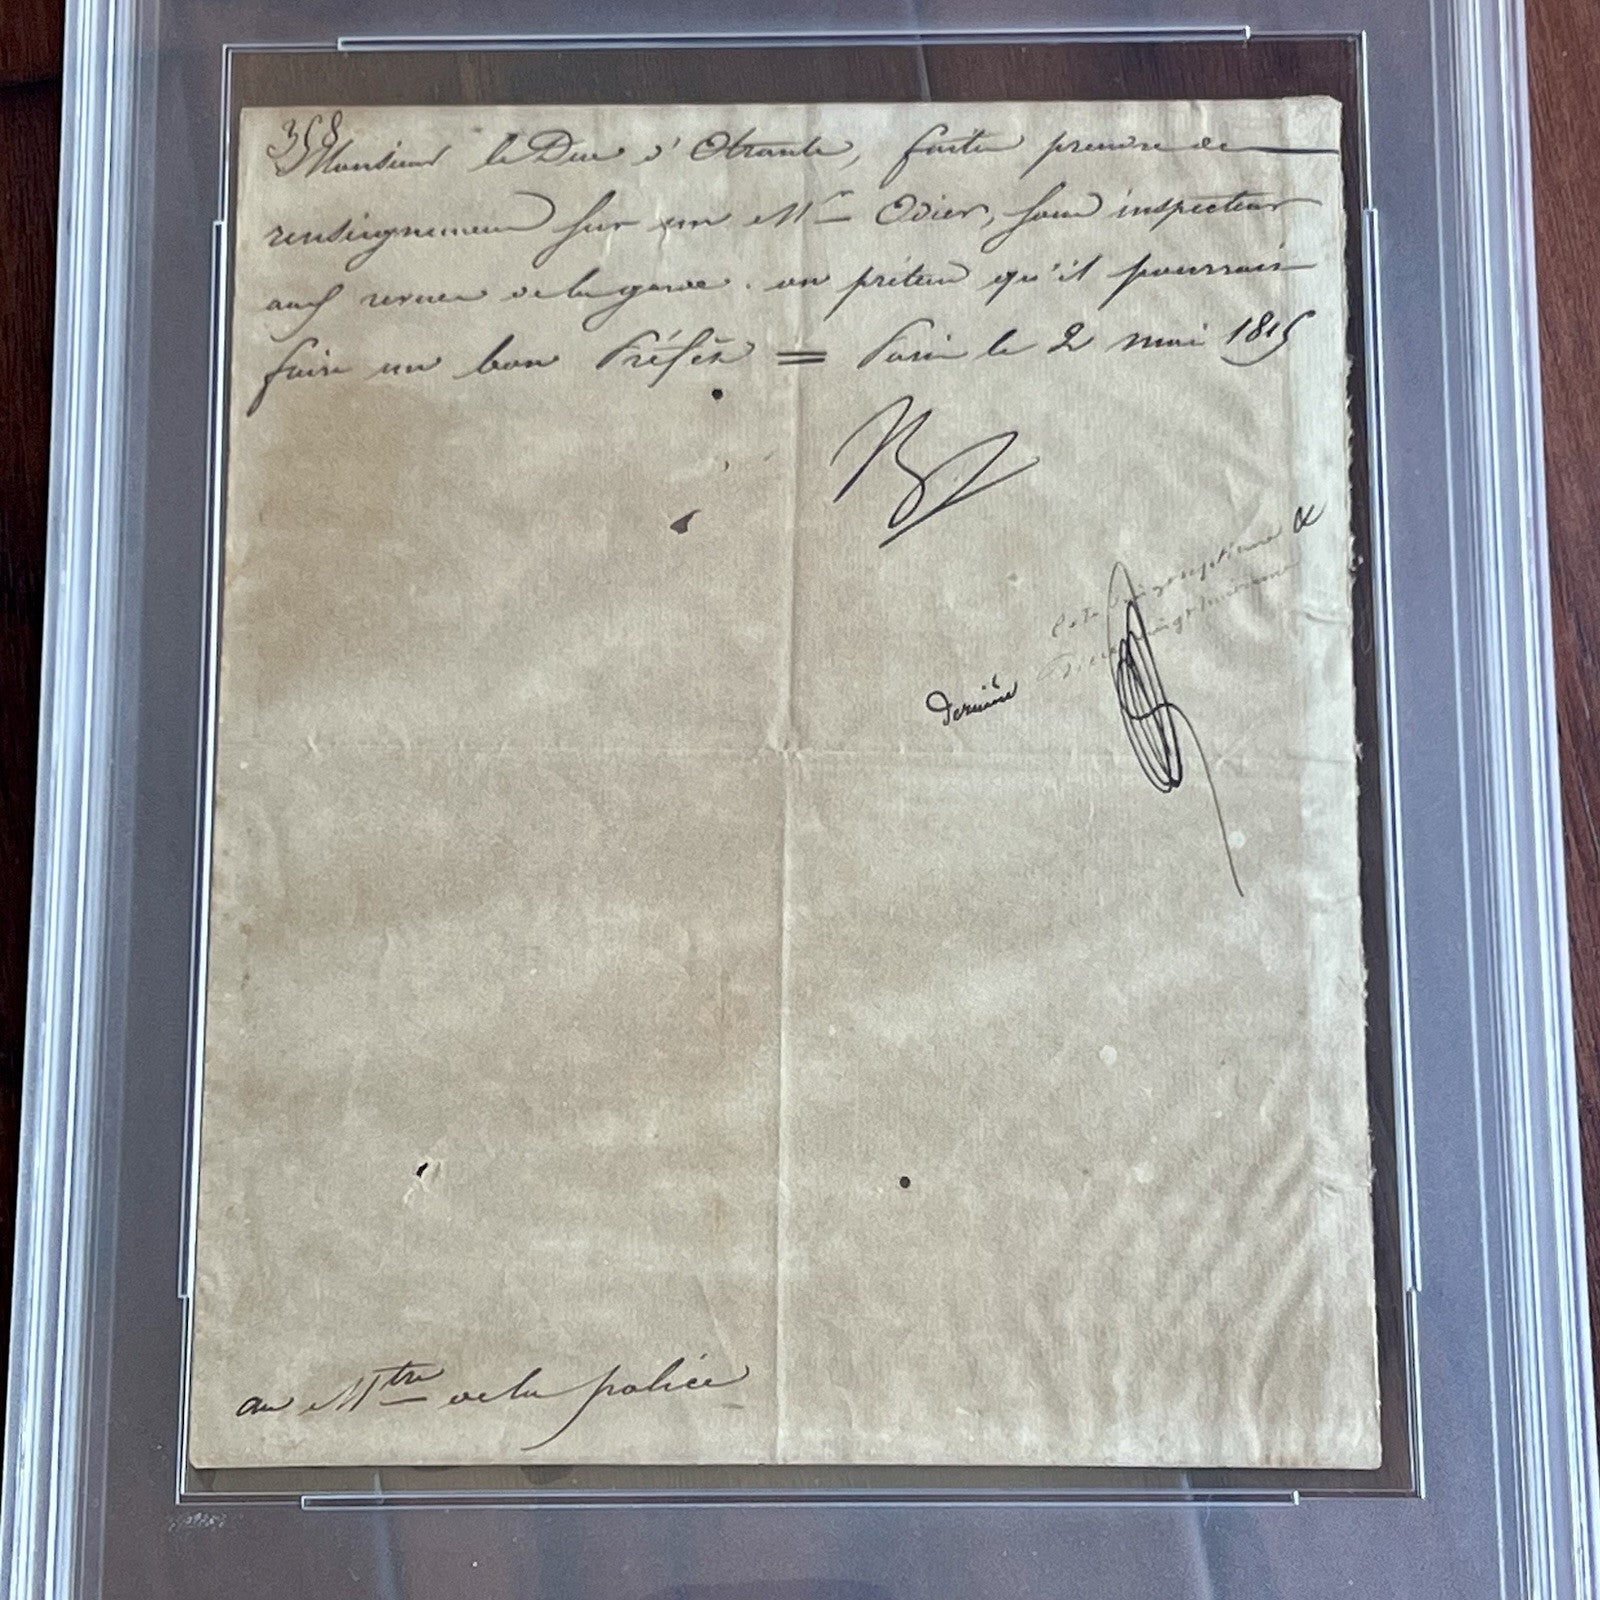 358
Monsieur le Duc d'Otrante, faites prendre des
renseignemens sur un Mr Odier, sous inspecteur
aux revues de la garde. on prétend qu'il pourrait
faire un bon Préfêt = Paris le 2 mai 1815
&
Dernière
au Mtre de la police